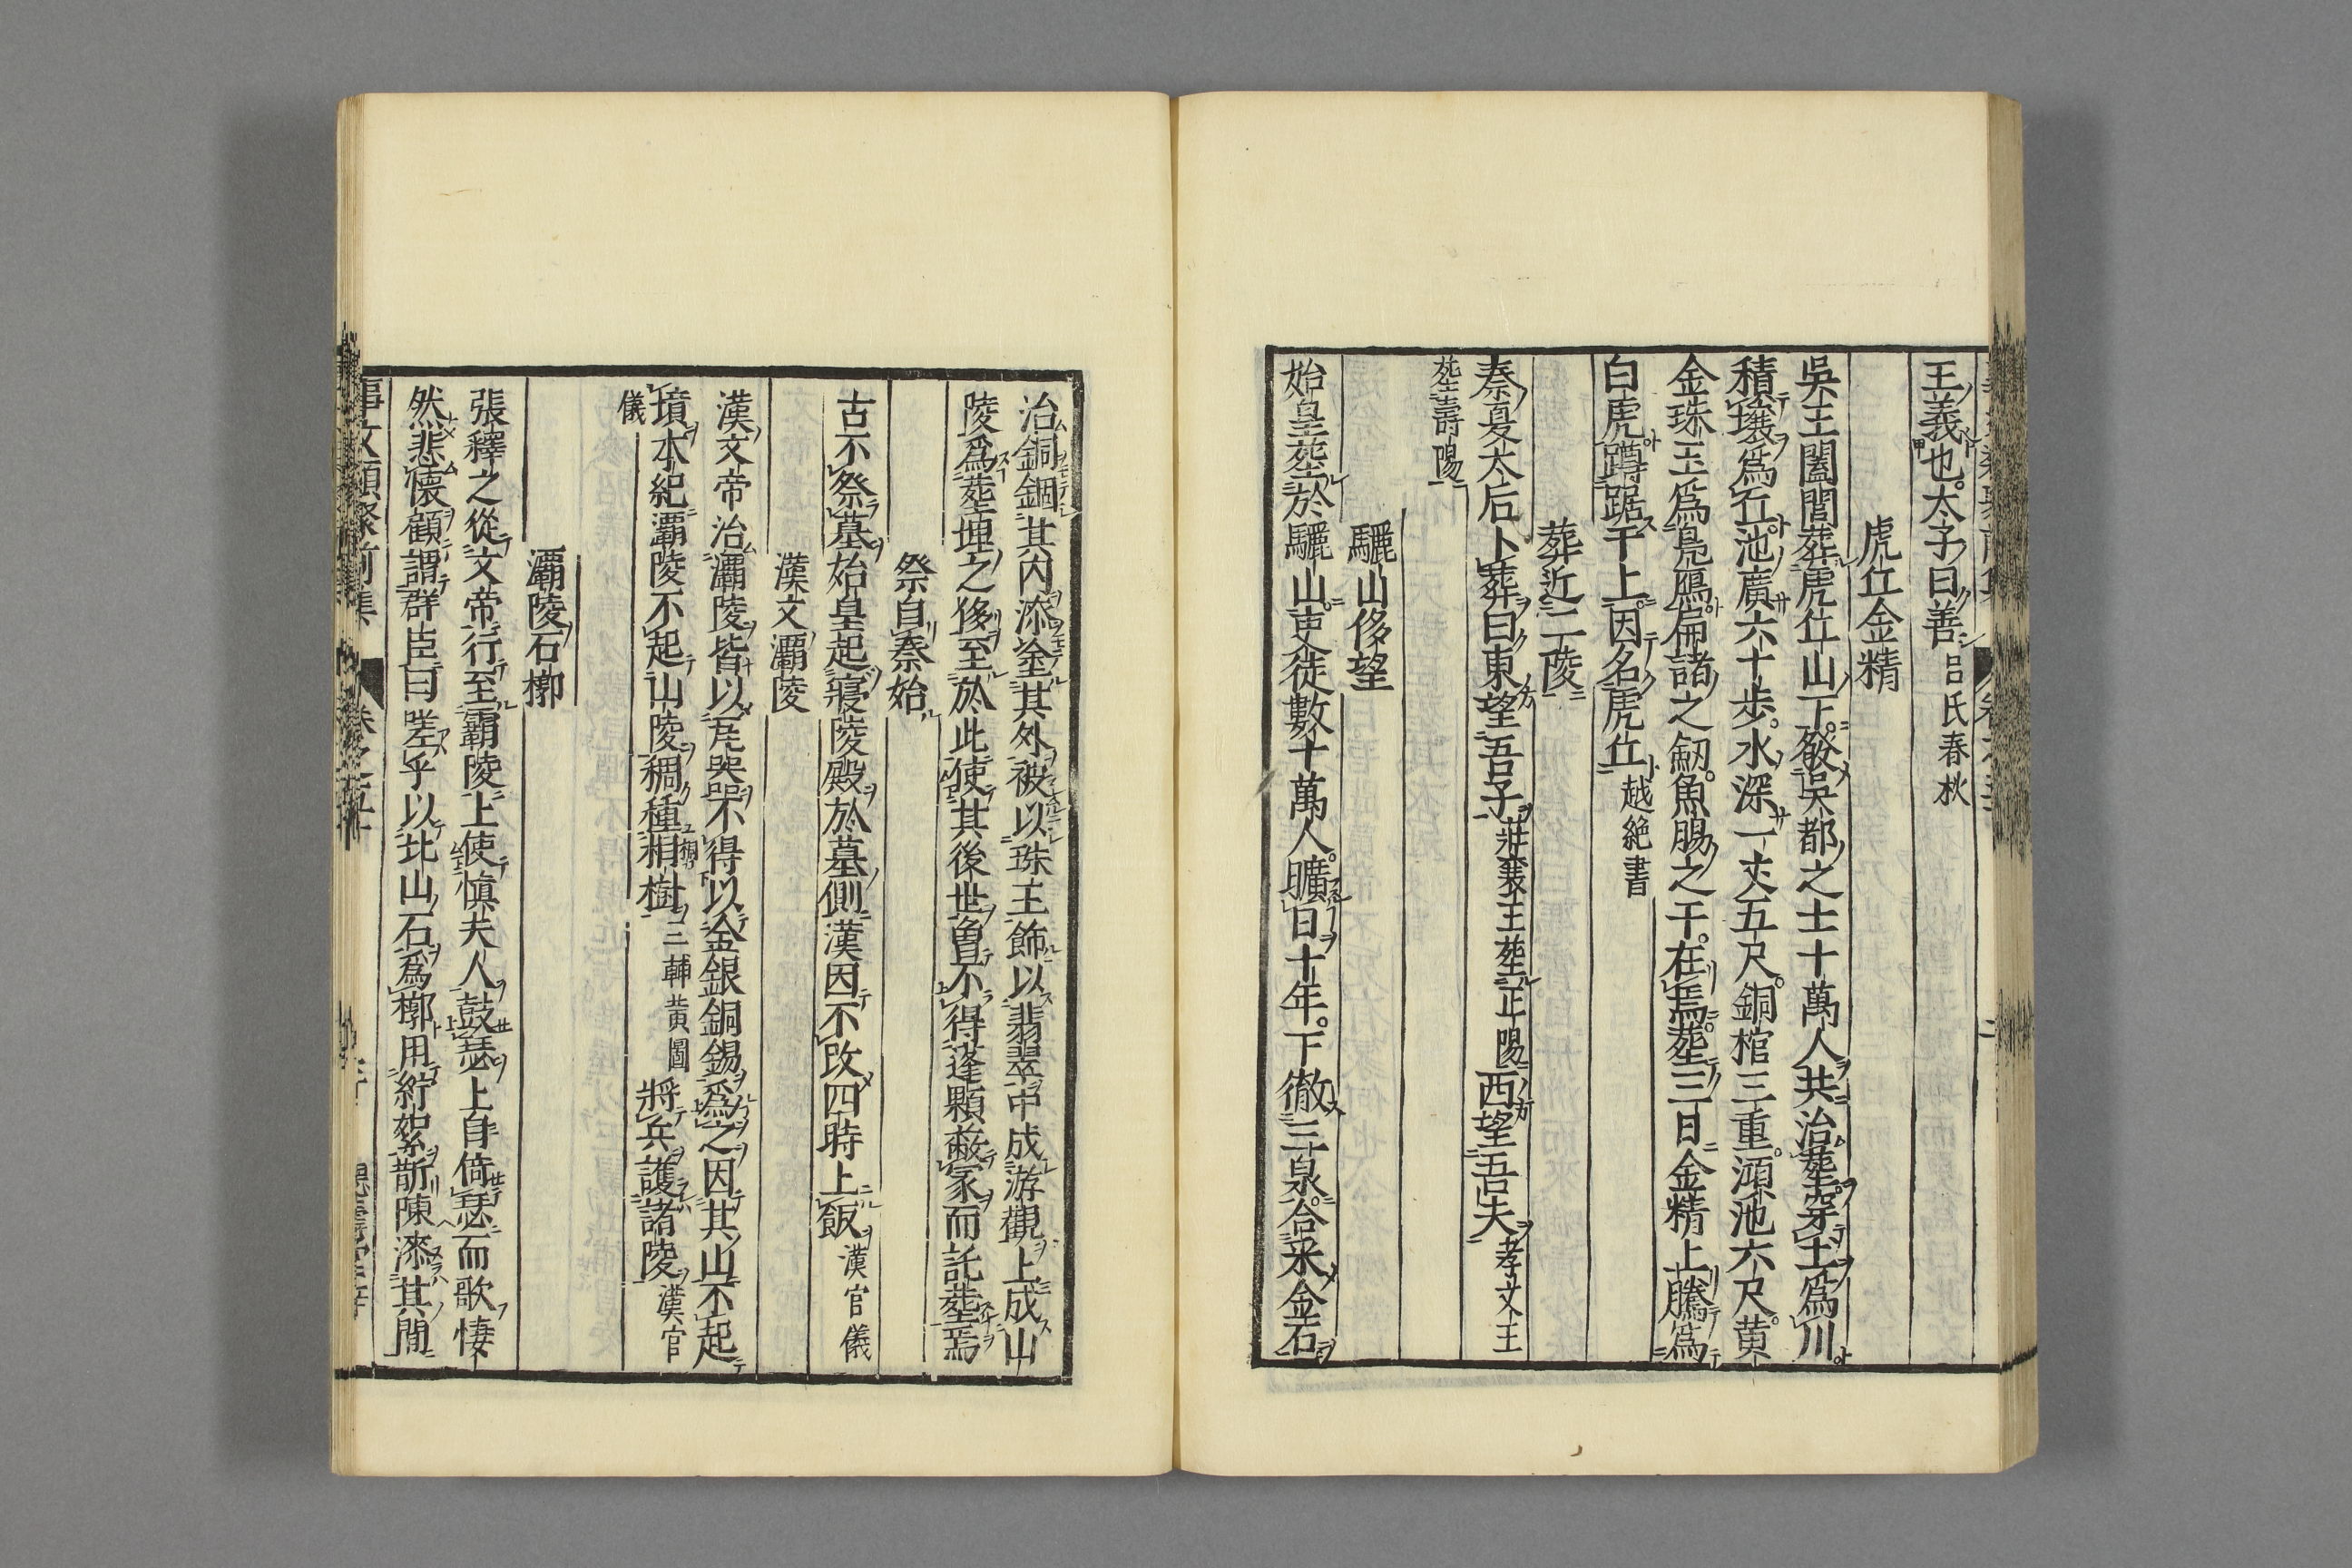 王義也太子曰善 呂氏春秋
虎丘金精
吳王闔閭葬虎丘山下發吳都之士十萬人共治塟穿土爲川
積壤爲丘池廣六十步水深一丈五尺銅棺三重澒池六尺黄
金珠玉爲鳧鴈扁諸之劒魚腸之干在焉塟三日金精上騰爲
白虎蹲踞于上因名虎丘 越絶書
葬近二陵
秦夏太后卜葬曰東望吾子 莊襄王塟正陽 西望吾夫 孝文王
塟壽陽
驪山侈望
始皇塟於驪山吏徒數十萬人曠日十年下徹三泉合采金石
治銅錮其内漆塗其外被以珠玉飾以翡翠中成游觀上成山
陵爲塟埋之侈至於此使其後世曽不得蓬顆蔽冢而託塟焉
祭自秦始
古不祭墓始皇起寢陵殿於墓側漢因不改四時上飯 漢官儀
漢文灞陵
漢文帝治灞陵皆以瓦器不得以金銀銅錫爲之因其山不起
墳本紀灞陵不起山陵稠種栢樹 三輔黄圖 將兵護諸陵 漢官
儀
灞陵石槨
張釋之從文帝行至霸陵上使愼夫人鼓瑟上自倚瑟而歌悽
然悲懷顧謂群臣曰嗟乎以北山石爲槨用紵絮斮陳漆其間
事文類聚前集